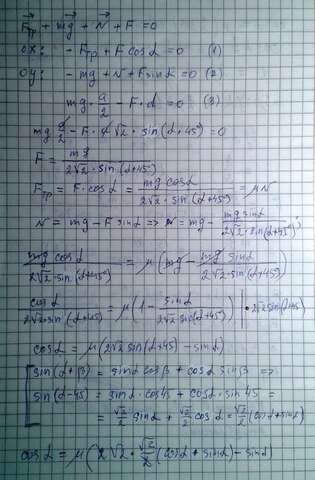 F→тр + mg→ + N→ + F→ = 0
ox: - Fтр + F cos α = 0 (1)
oy: - mg + N + F sin α = 0 (2)
mg · a/2 - F · d = 0 (3)
mg a/2 - F · a√2 · sin(α+45°) = 0
F = mg / 2√2 · sin(α+45°)
Fтр = F cos α = mg cos α / 2√2 · sin(α+45°) = μN
N = mg - F sin α => N = mg - mg sin α / 2√2 · sin(α+45°)
mg cos α / 2√2 sin(α+45°) = μ (mg - mg sin α / 2√2 · sin(α+45°))
cos α / 2√2 · sin(α+45°) = μ (1 - sin α / 2√2 sin(α+45°)) | · 2√2 sin(α+45)
cos α = μ (2√2 sin(α+45) - sin α)
sin(α+β) = sin α cos β + cos α sin β =>
sin(α+45) = sin α · cos 45 + cos α · sin 45 =
= √2/2 sin α + √2/2 cos α = √2/2 (cos α + sin α)
cos α = μ (2√2 · √2/2 (cos α + sin α) - sin α)